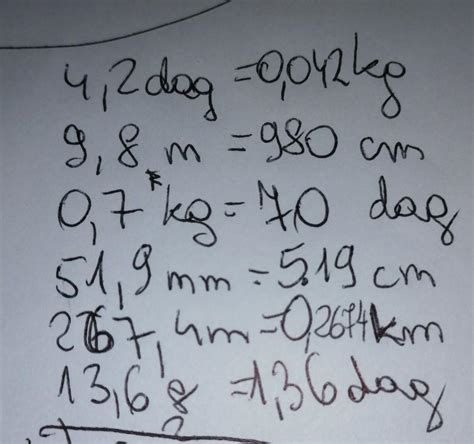 4,2 dag = 0,042 kg
9,8 m = 980 cm
0,7 kg = 70 dag
51,9 mm = 5.19 cm
267,4m = 0,2674 km
13,6 g = 1,36 dag